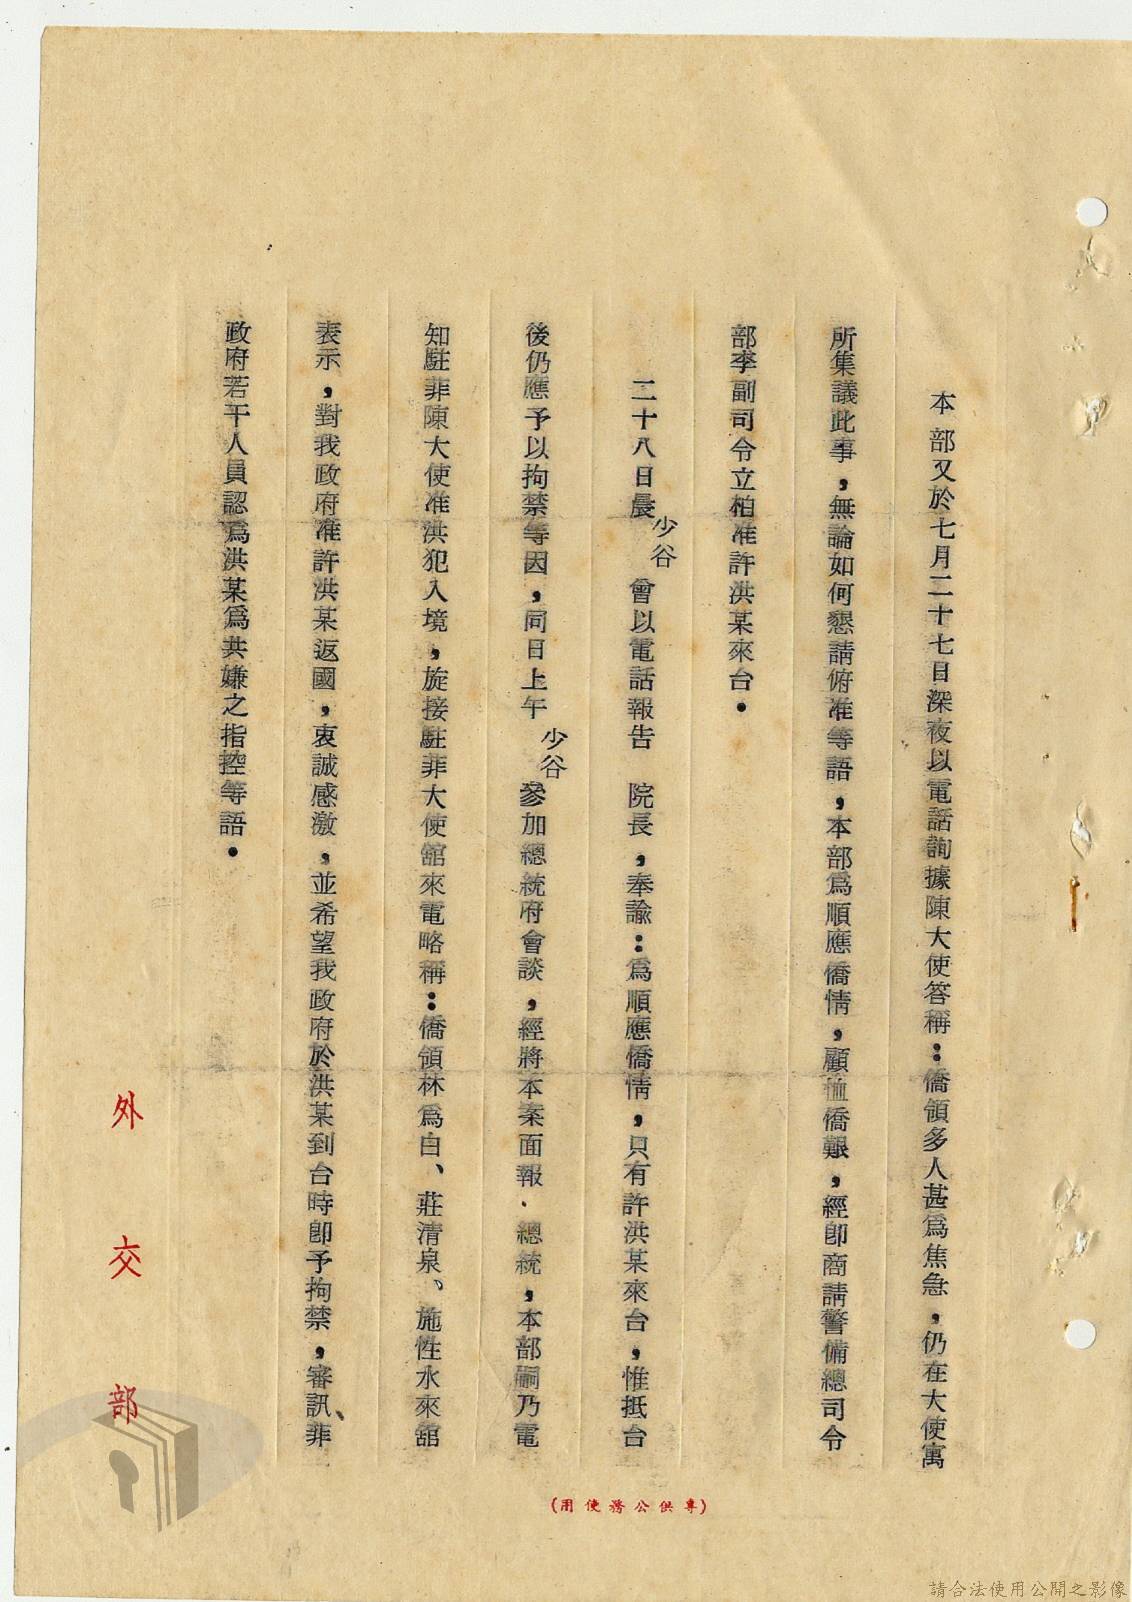 本部又於七月二十七日深夜以電話詢據陳大使答稱：僑領多人甚為焦急，仍在大使寓
所集議此事，無論如何懇請俯准等語，本部為順應僑情，顧恤僑艱，經即商請警備總司令
部李副司令立柏准許洪某來台。
二十八日晨少谷曾以電話報告　院長，奉諭：為順應僑情，只有許洪某來台，惟抵台
後仍應予以拘禁等因，同日上午少谷參加總統府會談，經將本案面報．總統，本部嗣乃電
知駐菲陳大使准洪犯入境，旋接駐菲大使館來電略稱：僑領林為白、莊清泉、施性水來舘
表示，對我政府准許洪某返國，衷誠感激，並希望我政府於洪某到台時即予拘禁，審訊、菲
政府若干人員認為洪某為共嫌之指控等語。
外交部
(專供公務使用)
請合法使用公開之影像